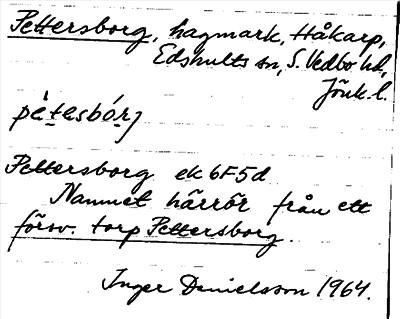 Pettersborg, hagmark, Håkarp,
Edshults sn, S. Vedbo hd,
Jönk. l.
pètesbórj
Pettersborg ek 6F5d
Namnet härrör från ett
försv. torp Pettersborg.
Inger Danielsson 1964.